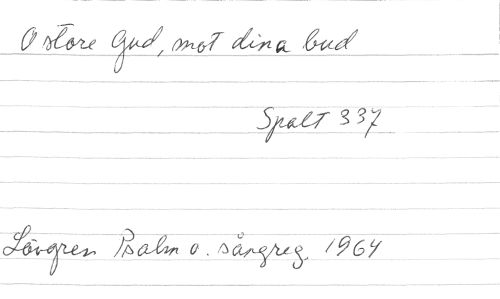 O store Gud, mot dina bud
Spalt 337
Lövgren Psalm o. sångreg. 1964